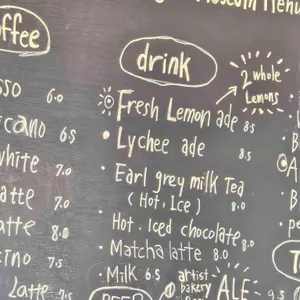 Museum Menu
offee
drink
2 whole
Lemons
Fresh Lemon ade 8.5
Lychee ade 8.5
Earl grey milk Tea
(Hot, Ice) 8.0
Hot. Iced chocolate 8.0
Matcha latte 8.0
Milk 6.5
artist
bakery
ALE
9.5
BEER
sso 6.0
icano 6.5
white 7.0
atte 7.0
atte 8.0
cino 7.5
Latte 7.5